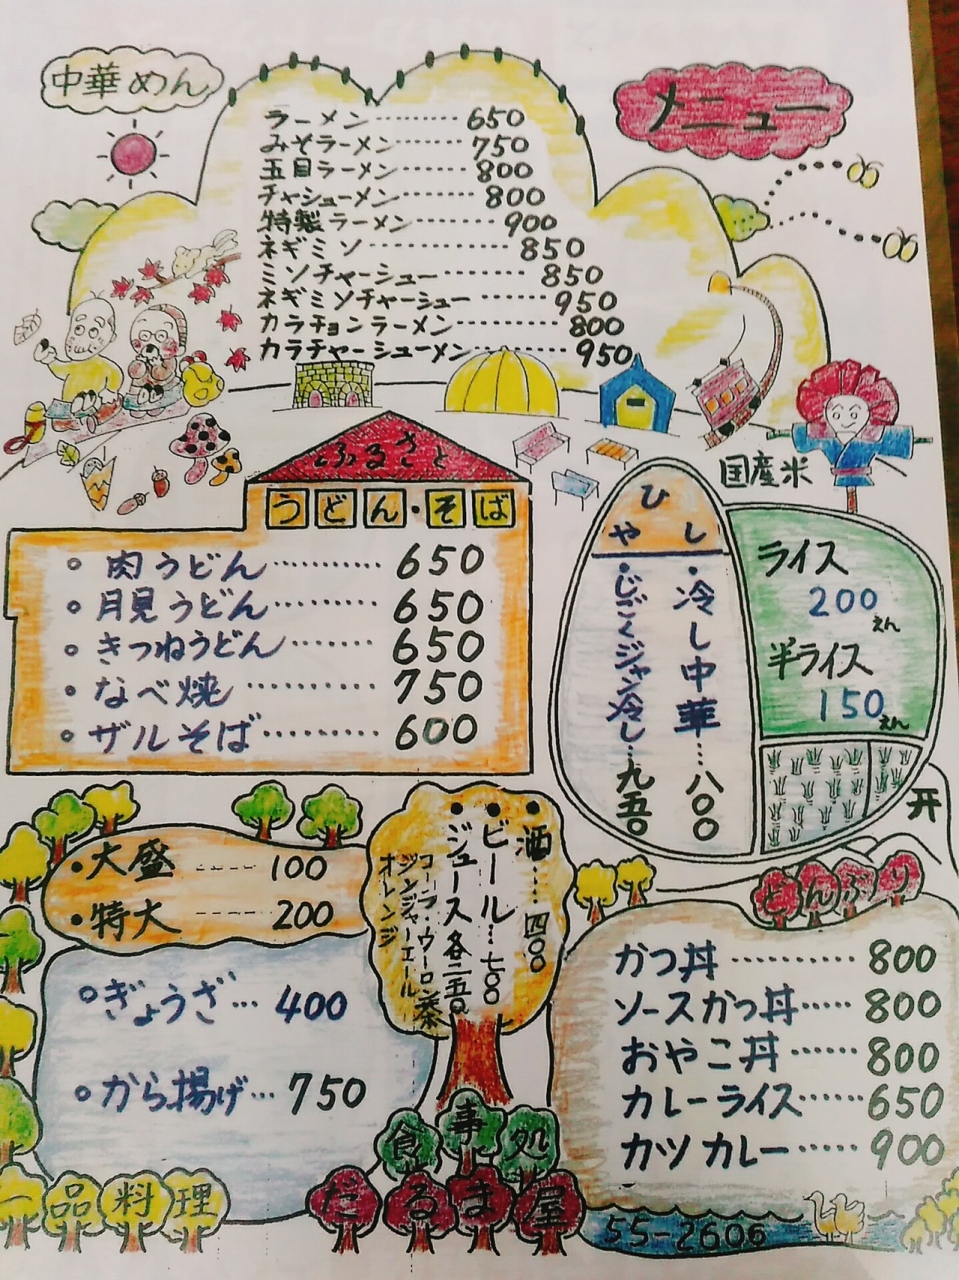 中華めん
メニュー
ラーメン………650
みそラーメン………750
五目ラーメン………800
チャシューメン………800
特製ラーメン………900
ネギミソ………850
ミソチャーシュー………850
ネギミソチャーシュー………950
カラチョンラーメン………800
カラチャーシューメン………950
ふるさと
うどん・そば
・肉うどん………650
・月見うどん………650
・きつねうどん………650
・なべ焼………750
・ザルそば………600
国産米
ひやし
・冷し中華…八〇〇
・じごくジャン冷し…九五〇
ライス
200えん
半ライス
150えん
・大盛 ---- 100
・特大 ---- 200
・酒……四〇〇
・ビール…七〇〇
・ジュース各二五〇
コーラ・ウーロン茶
ジンジャーエール
オレンジ
・ぎょうざ…400
・から揚げ…750
一品料理
どんぶり
かつ丼………800
ソースかつ丼……800
おやこ丼……800
カレーライス……650
カツカレー……900
食事処
だるま屋
55-2606